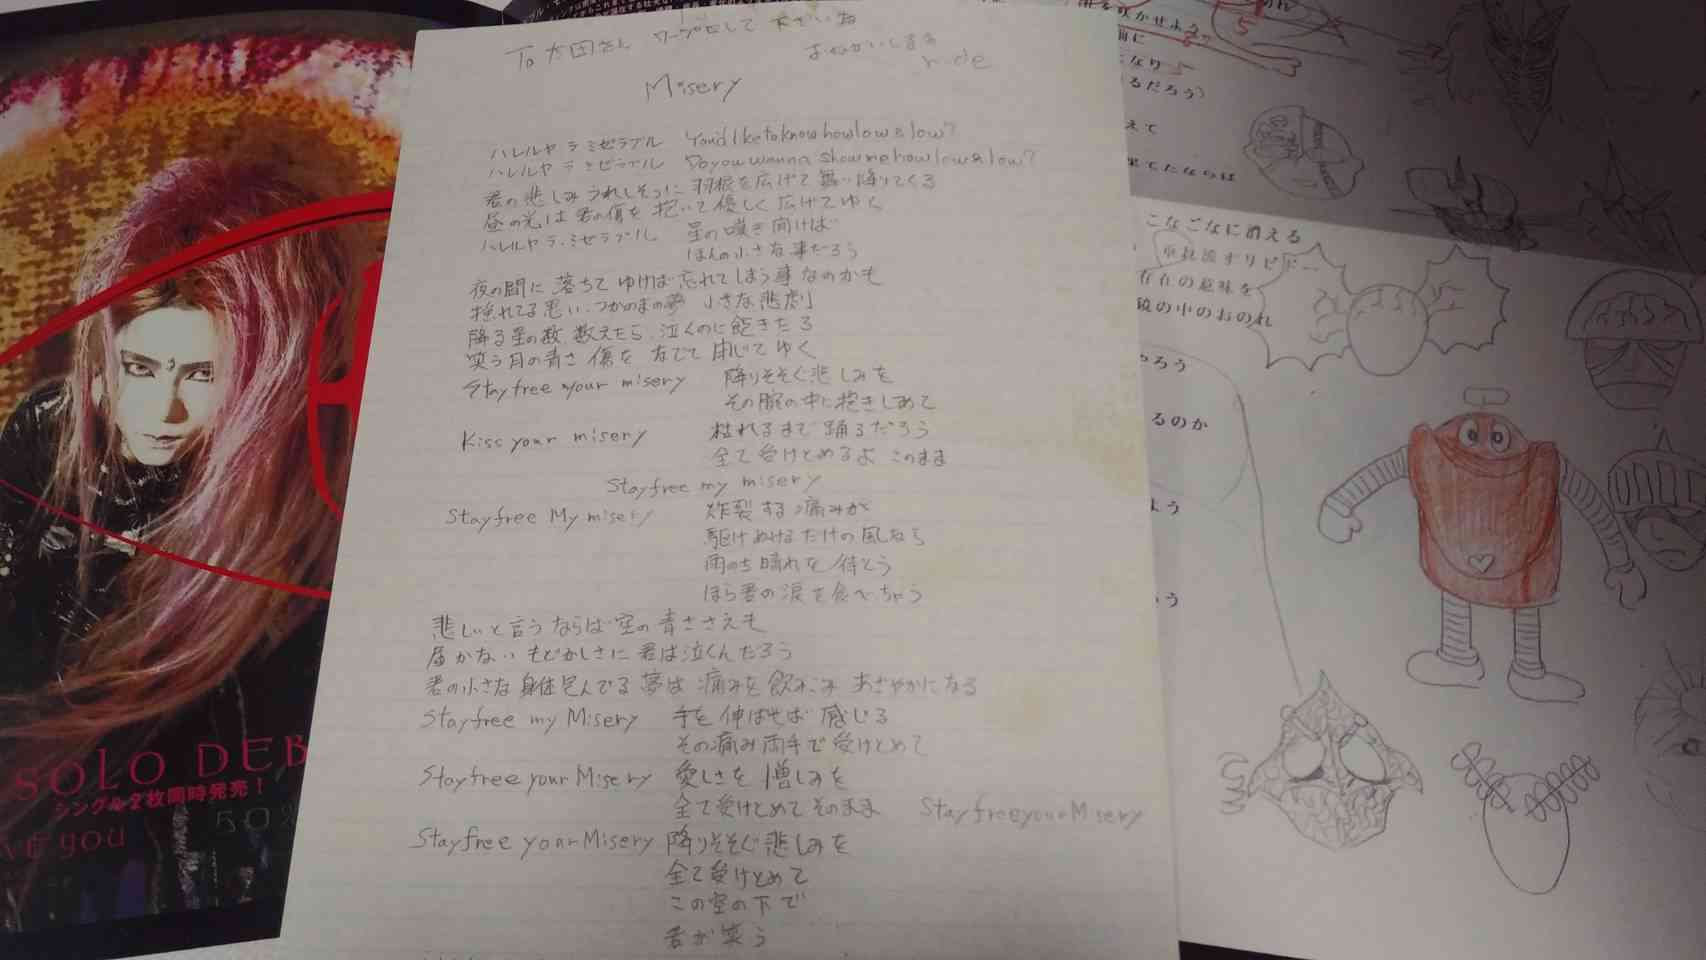 To 大田さん ワープロして下さいね
おねがいします
hide
Misery
ハレルヤ ラ ミゼラブル You'd like to know how low is low?
ハレルヤ ラ ミゼラブル Do you wanna show me how low is low?
君の悲しみうれしそうに羽根を広げて舞い降りてくる
昼の光は君の傷を抱いて優しく広げてゆく
ハレルヤ ラ・ミゼラブル 星の嘆き聞けば
ほんの小さな事だろう
夜の闇に落ちてゆけば忘れてしまう事なのかも
揺れてる思い つかのまの夢 小さな悲劇
降る星の数 数えたら 泣くのに飽きたろ
笑う月の青さ 傷を なでて 閉じてゆく
Stay free your misery 降りそそぐ悲しみを
その腕の中に抱きしめて
Kiss your misery 枯れるまで踊るだろう
全て受けとめるよ このまま
Stay free my misery
Stay free My misery 炸裂する痛みが
駆けぬけるだけの風なら
雨のち晴れを待とう
ほら君の涙を食べちゃう
悲しいと言うならば空の青ささえも
届かない もどかしさに君は泣くんだろう
君の小さな身体包んでる夢は 痛みを飲みこみ あざやかになる
Stay free my Misery 手を伸ばせば感じる
その痛み両手で受けとめて
Stay free your Misery 愛しさを 憎しみを
全て受けとめてそのまま Stay free your Misery
Stay free your Misery 降りそそぐ悲しみを
全て受けとめて
この空の下で
君が笑う
SOLO DEB
シングル2枚同時発売!
you
50%
咲かせよう
前に
なり
るだろう)
えて
果てたなのは
こなごなに消える
垂れ流すリビドー…
存在の意味を
鏡の中のおのれ
やろう
るのか
よう
う